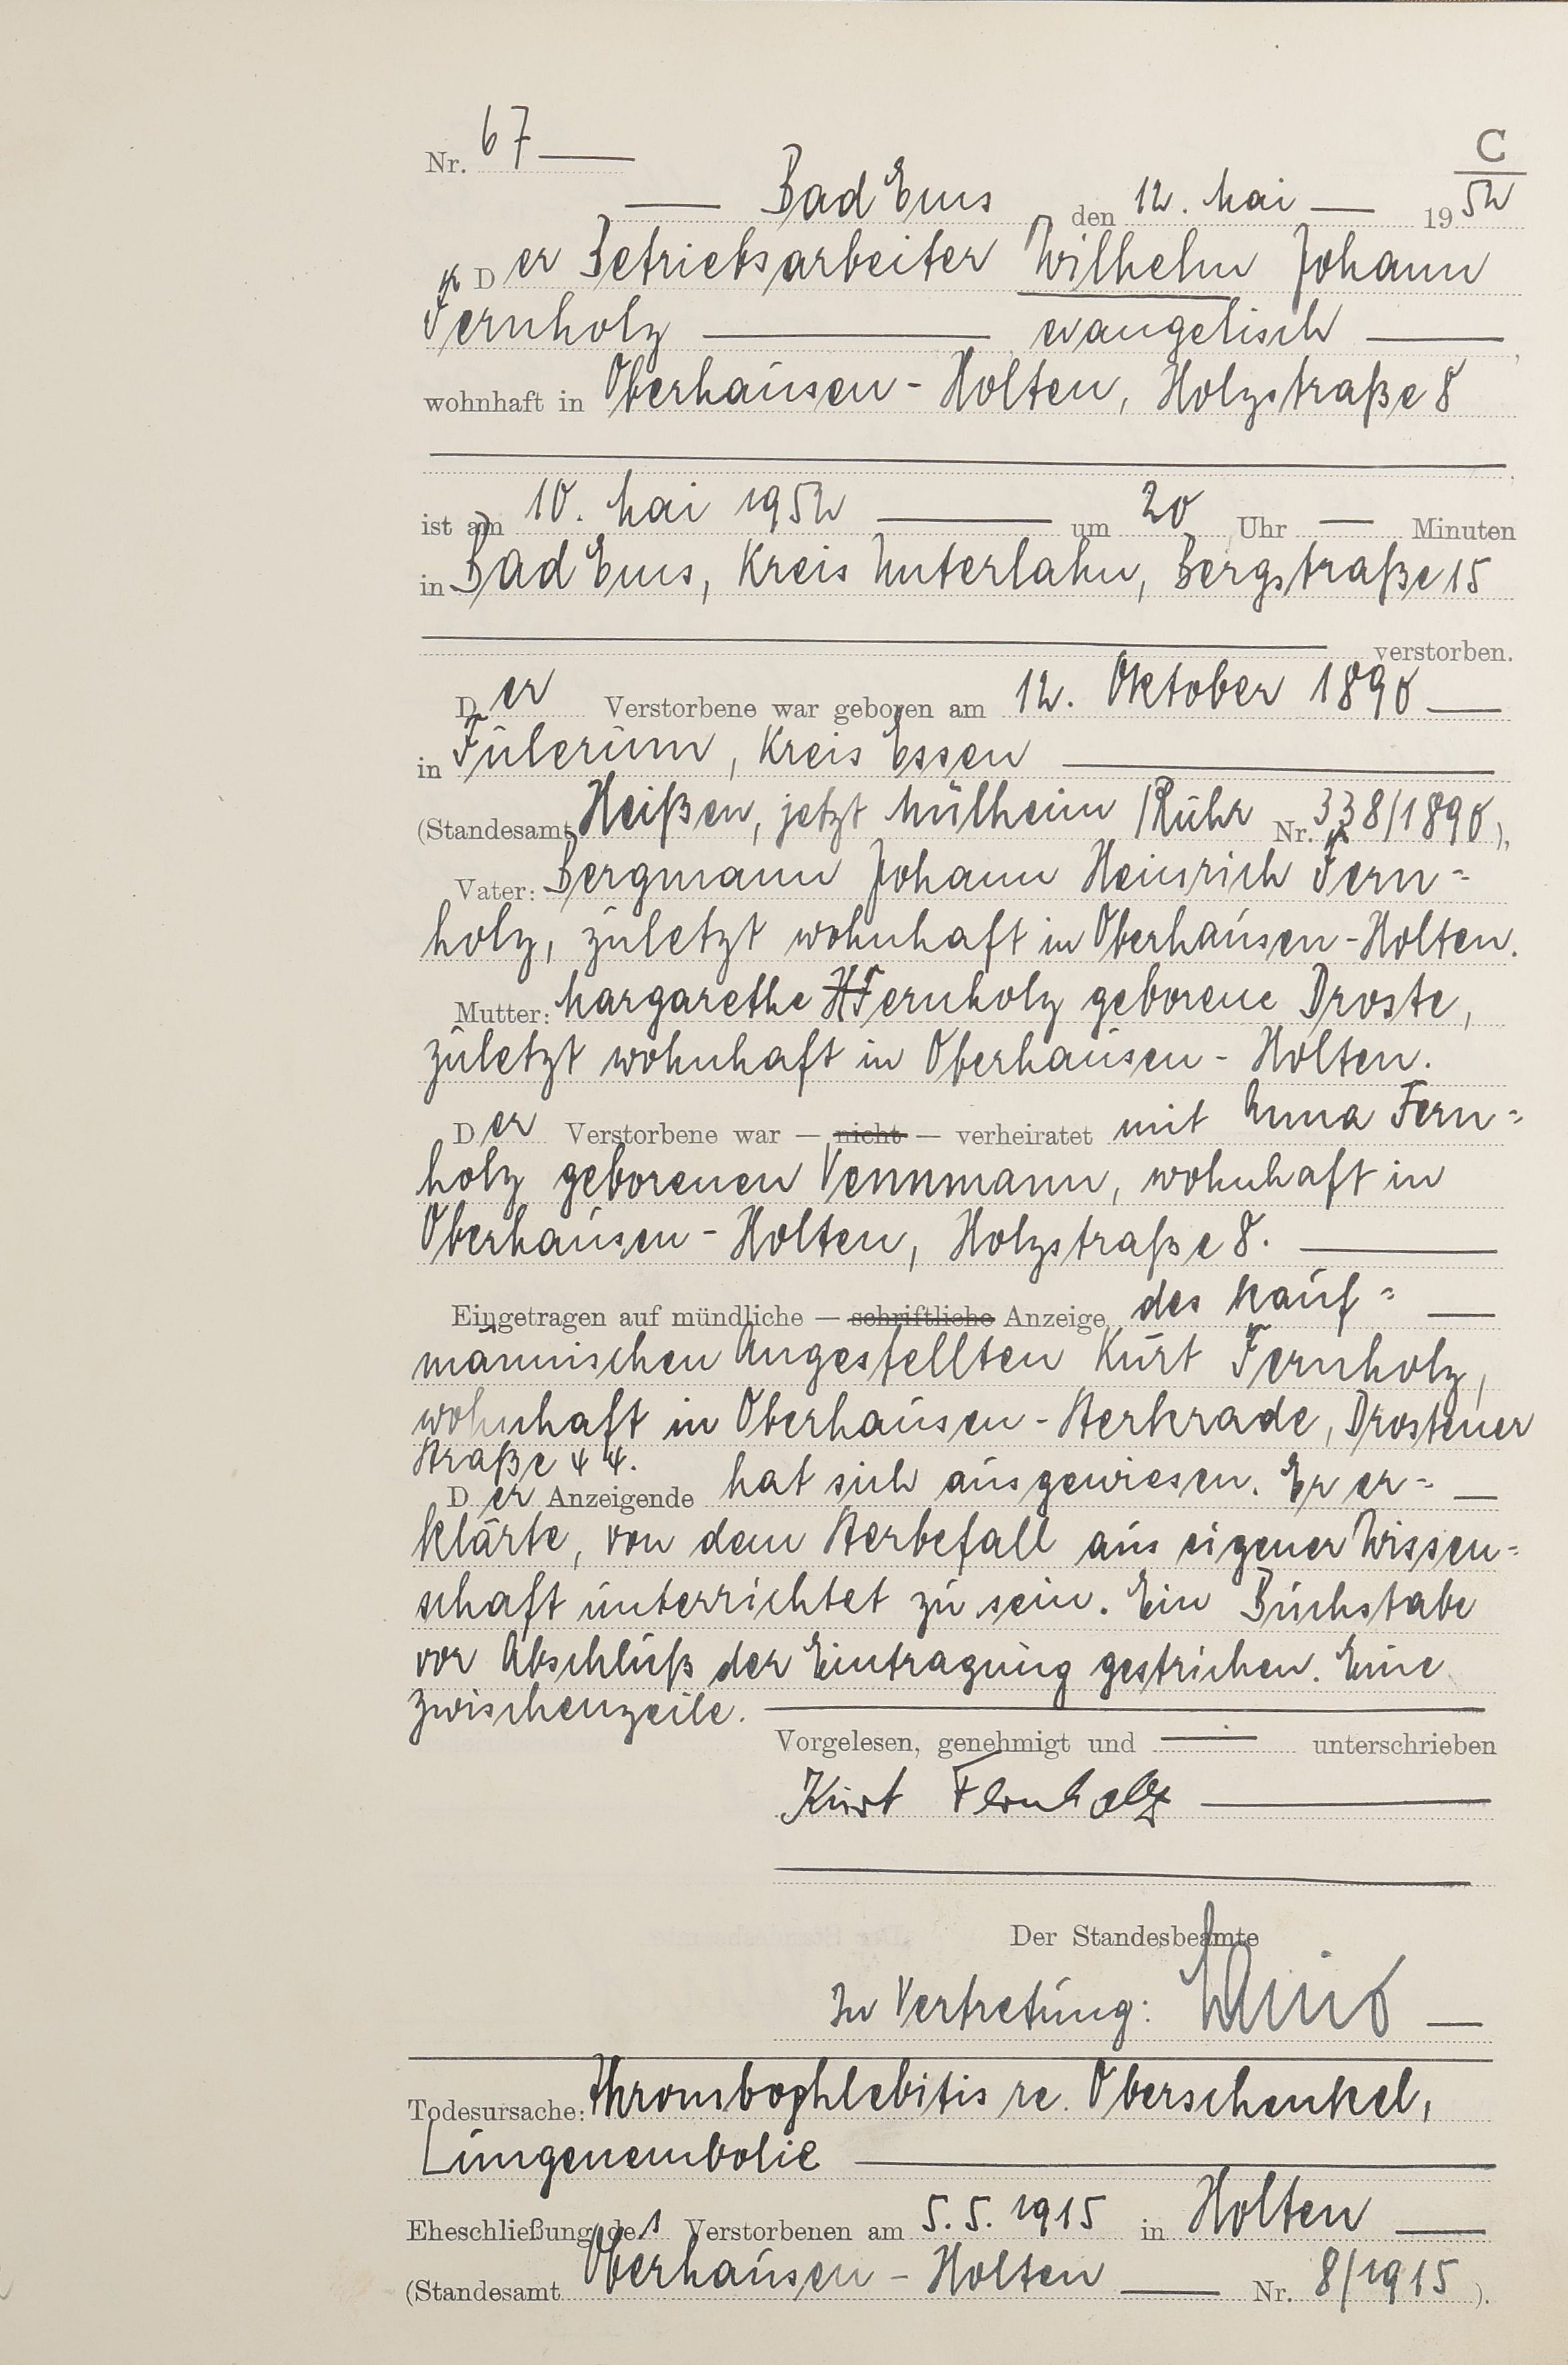 C
Nr. 67
Bad Ems den 12. Mai 1952
Der Betriebsarbeiter Wilhelm Johann
Fernholz evangelisch ,
wohnhaft in Oberhausen - Holten, Holzstraße 8
ist am 10. Mai 1952 um 20 Uhr — Minuten
in Bad Ems, Kreis Unterlahn, Bergstraße 15
verstorben.
Der Verstorbene war geboren am 12. Oktober 1890
in Fulerum, Kreis Essen
(Standesamt Heißen, jetzt Mülheim/Ruhr Nr. 338/1890),
Vater: Bergmann Johann Heinrich Fern=
holz, zuletzt wohnhaft in Oberhausen-Holten.
Mutter: Margarethe H Fernholz geborene Droste,
zuletzt wohnhaft in Oberhausen - Holten.
Der Verstorbene war — nicht — verheiratet mit Anna Fern=
holz geborenen Vennmann, wohnhaft in
Oberhausen - Holten, Holzstraße 8.
Eingetragen auf mündliche — schriftliche Anzeige des kauf=
männischen Angestellten Kurt Fernholz,
wohnhaft in Oberhausen - Sterkrade, Drostener
Straße 44.
Der Anzeigende hat sich ausgewiesen. Er er=
klärte, von dem Sterbefall aus eigener Wissen=
schaft unterrichtet zu sein. Ein Buchstabe
vor Abschluß der Eintragung gestrichen. Eine
Zwischenzeile.
Vorgelesen, genehmigt und — unterschrieben
Kurt Fernholz
Der Standesbeamte
In Vertretung:
Todesursache: Thrombophlebitis re. Oberschenkel,
Lungenembolie
Eheschließung des Verstorbenen am 5.5.1915 in Holten
(Standesamt Oberhausen - Holten Nr. 8/1915).